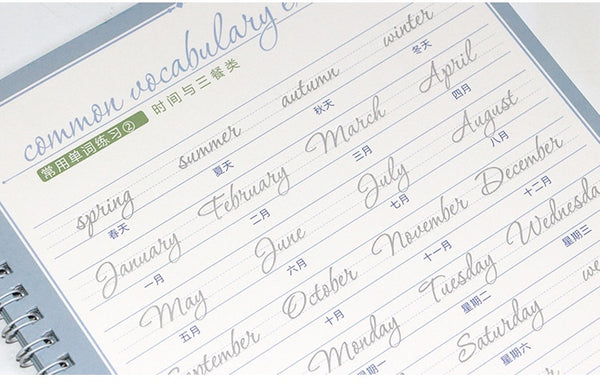 common vocabulary
常用单词练习② 时间与三餐类
spring summer autumn winter
春天 夏天 秋天 冬天
January February March April
一月 二月 三月 四月
May June July August
五月 六月 七月 八月
September October November December
十月 十一月 十二月
Monday Tuesday Wednesday
星期二 星期三
Saturday
星期六